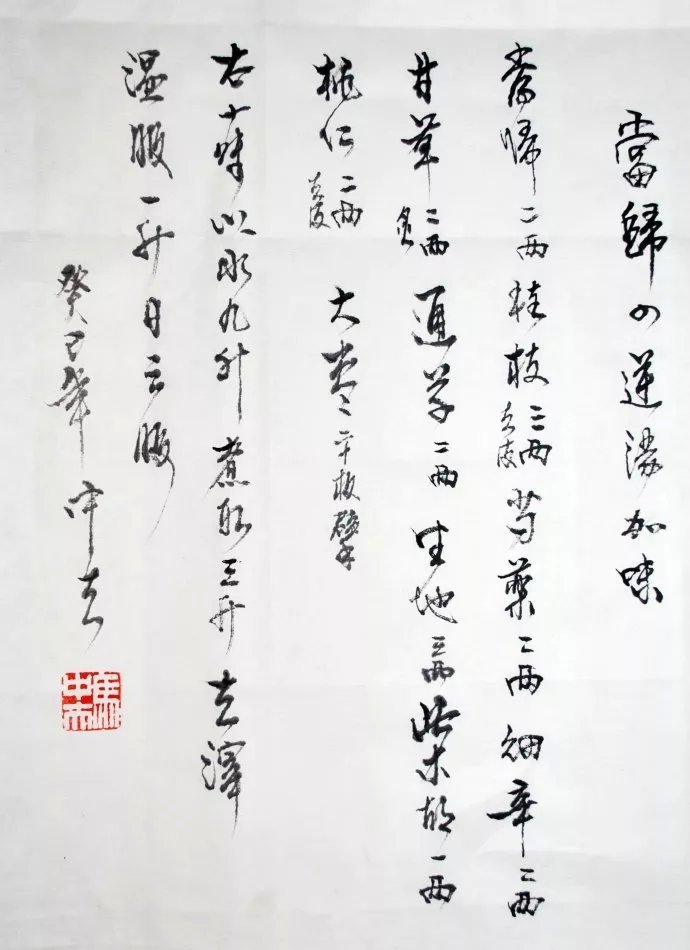 當歸四逆湯加味
當歸二兩桂枝三兩去皮芍藥二兩細辛二兩
甘草二兩炙通草二兩生地三兩柴胡一兩
桃仁二兩去皮大棗二十枚擘
右十味以水九升煮取三升去滓
温服一升日三服
癸巳年中